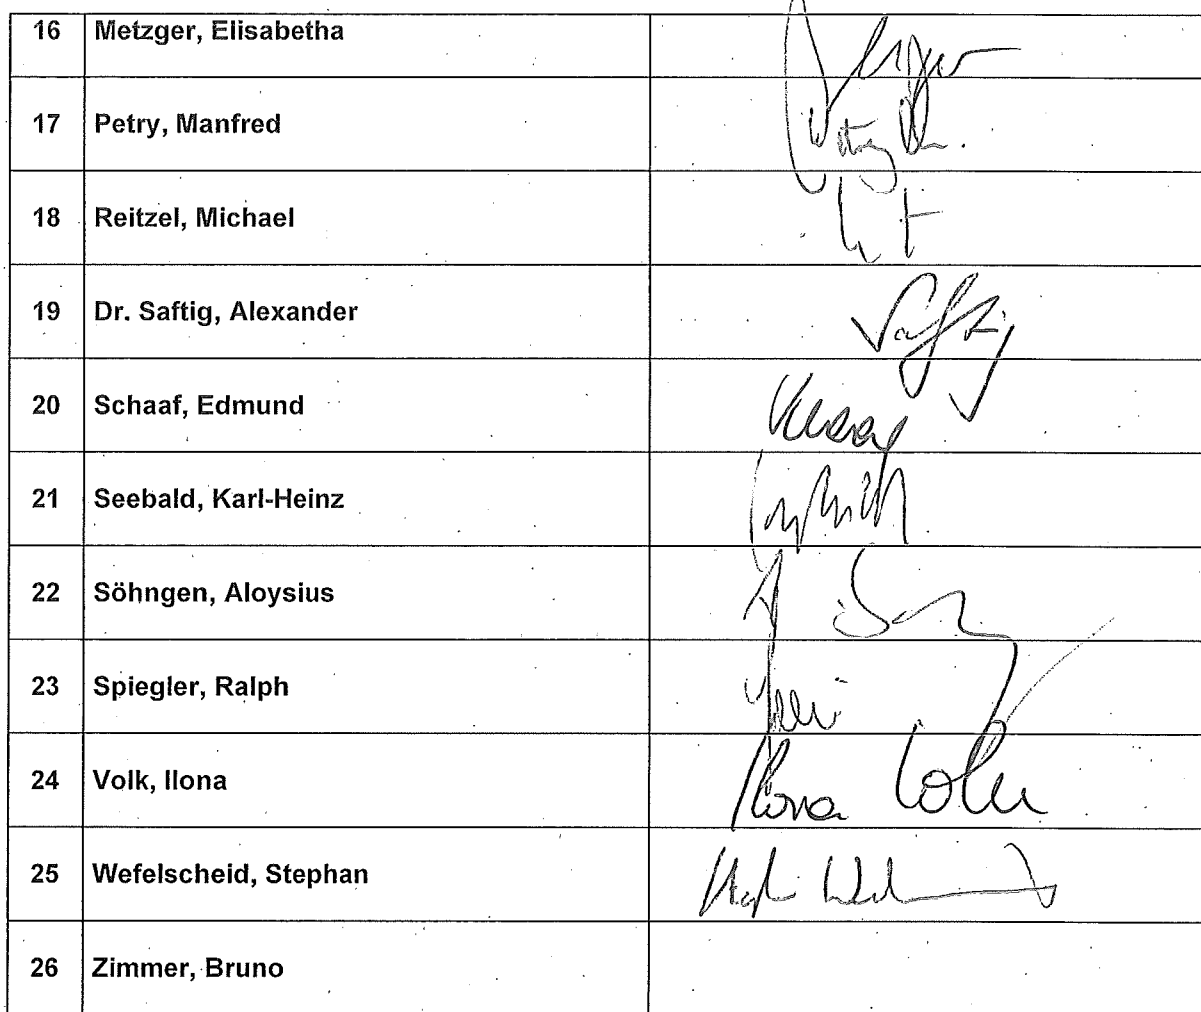 16 Metzger, Elisabetha
17 Petry, Manfred
18 Reitzel, Michael
19 Dr. Saftig, Alexander Saftig
20 Schaaf, Edmund
21 Seebald, Karl-Heinz
22 Söhngen, Aloysius
23 Spiegler, Ralph
24 Volk, Ilona Ilona Volk
25 Wefelscheid, Stephan
26 Zimmer, Bruno